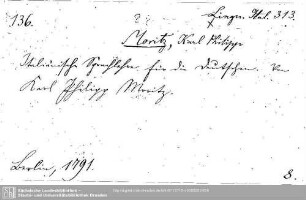 136. Lingu. Ital. 313.
Moritz, Karl Philipp
Italiänische Sprachlehre für die Deutschen. Von
Karl Philipp Moritz.
Berlin, 1791.
8.
Sächsische Landesbibliothek -
Staats- und Universitätsbibliothek Dresden